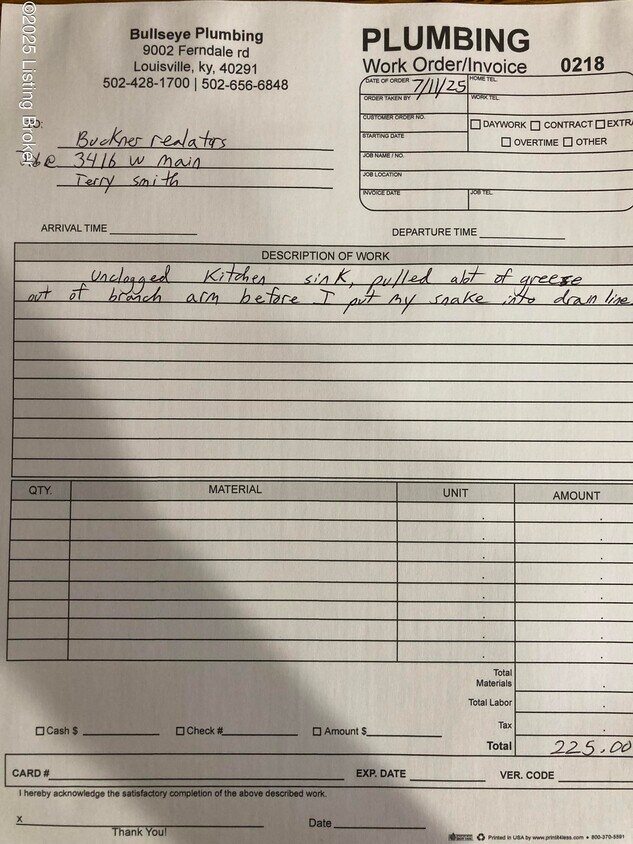 ©2025 Listing Broker
Bullseye Plumbing
9002 Ferndale rd
Louisville, ky, 40291
502-428-1700 | 502-656-6848
PLUMBING
Work Order/Invoice 0218
DATE OF ORDER 7/11/25 HOME TEL.
ORDER TAKEN BY WORK TEL.
CUSTOMER ORDER NO.
DAYWORK CONTRACT EXTRA
STARTING DATE
OVERTIME OTHER
JOB NAME / NO.
JOB LOCATION
INVOICE DATE JOB TEL.
Buckner realators
3416 w main
Terry smith
ARRIVAL TIME
DEPARTURE TIME
DESCRIPTION OF WORK
Unclogged Kitchen sink, pulled alot of greese
out of branch arm before I put my snake into drain line
QTY. MATERIAL UNIT AMOUNT
Total Materials
Total Labor
Tax
Cash $ Check # Amount $
Total 225.00
CARD # EXP. DATE VER. CODE
I hereby acknowledge the satisfactory completion of the above described work.
x
Thank You!
Date
Printed in USA by www.print4less.com • 800-370-5591